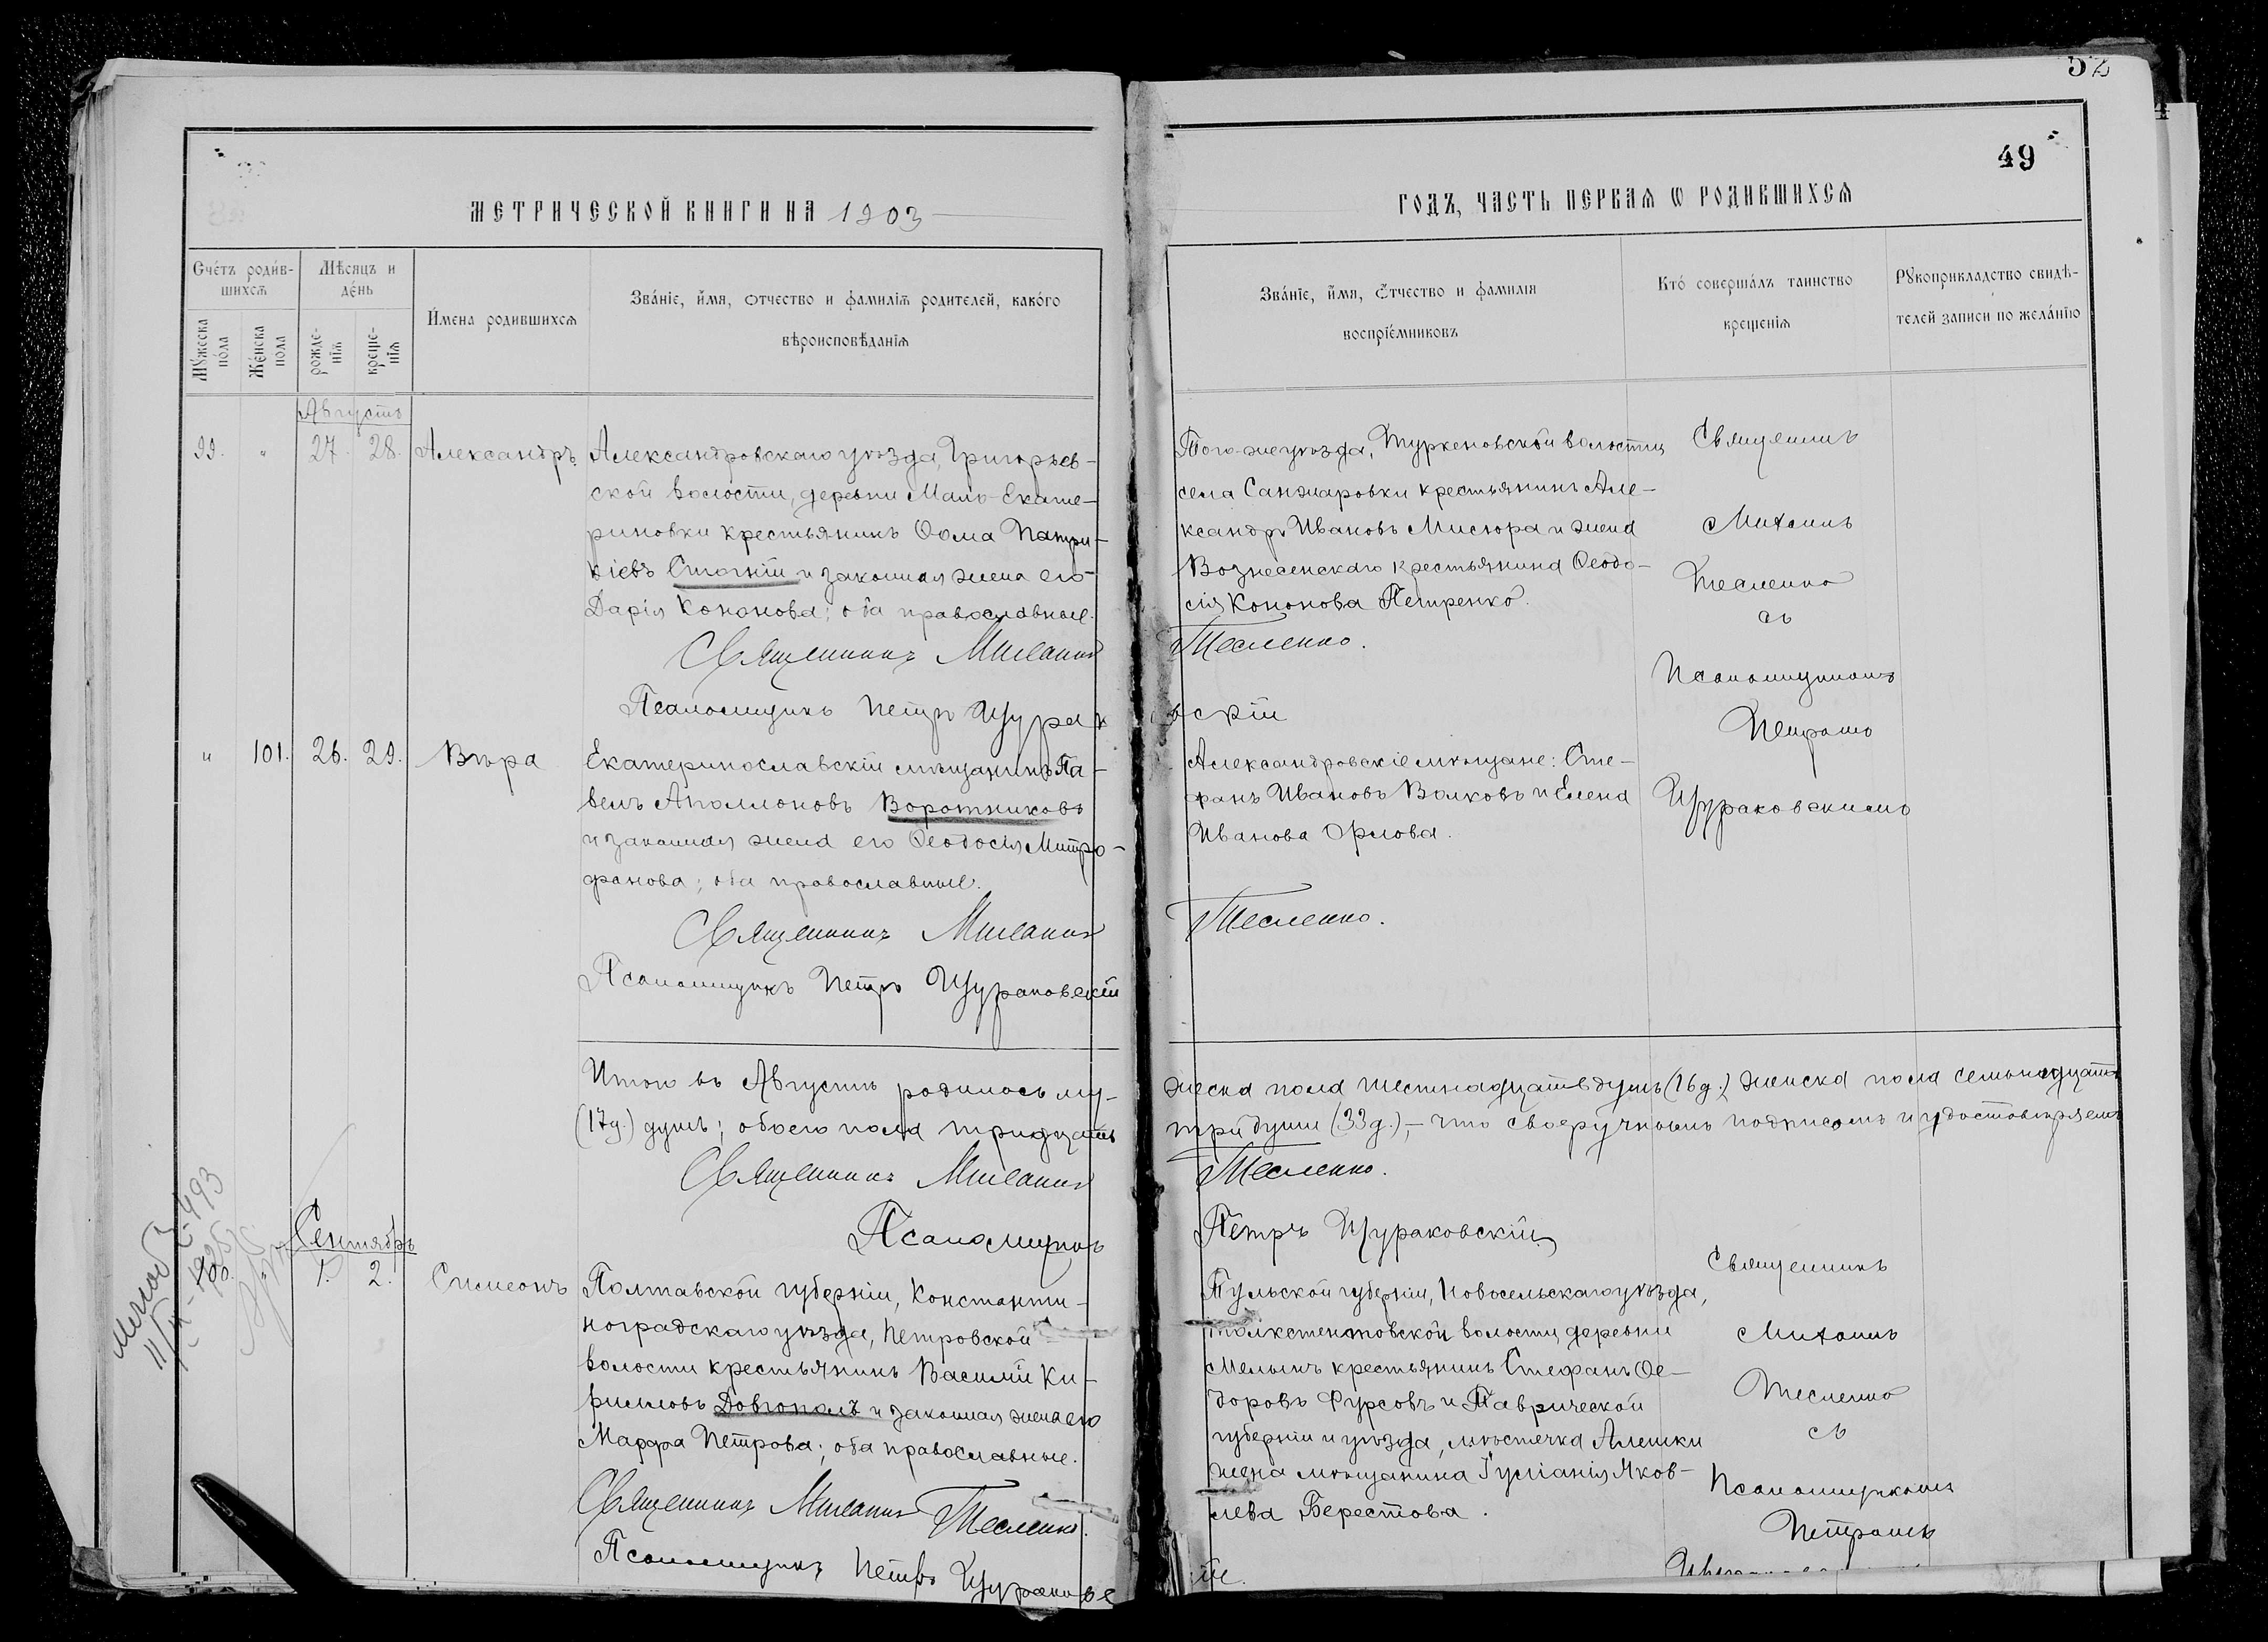 52
49
МЕТРИЧЕСКОЙ КНИГИ НА 1903
ГОДЪ, ЧАСТЬ ПЕРВАЯ Ѡ РОДИВШИХСЯ
Счетъ родив-
шихся
Мѣсяцъ и
день
Мужеска
пола
Женска
пола
рожде-
нія
креще-
нія
Имена родившихся
Званіе, имя, отчество и фамилія родителей, какого
вѣроисповѣданія
Званіе, имя, отчество и фамилія
воспріемниковъ
Кто совершалъ таинство
крещенія
Рукоприкладство свидѣ-
телей записи по желанію
Августъ
99. " 27. 28. Александръ.
Александровскаго уѣзда, Григорьев-
ской волости, деревни Мало-Екате-
риновки крестьянинъ Ѳома Патри-
кіевъ Стогній и законная жена его
Дарія Кононова; оба православные.
Священникъ Михаилъ Тесленко.
Псаломщикъ Петръ Щураковскій
Того-же уѣзда, Туркеновской волости,
села Санжаровки крестьянинъ Але-
ксандръ Ивановъ Мисюра и жена
Вознесенскаго крестьянина Ѳеодо-
сія Кононова Петренко.
Священникъ
Михаилъ
Тесленко
съ
Псаломщикомъ
Петромъ
Щураковскимъ
" 101. 26. 29. Вѣра
Екатеринославскій мѣщанинъ Па-
велъ Аполлоновъ Воротниковъ
и законная жена его Ѳеодосія Митро-
фанова; оба православные.
Священникъ Михаилъ Тесленко.
Псаломщикъ Петръ Щураковскій
Александровскіе мѣщане: Сте-
фанъ Ивановъ Волковъ и Елена
Иванова Орлова.
Итого въ Августѣ родилось му- жеска пола шестнадцать душъ (16 д.) женска пола семьнадцать
(17 д.) душъ; обоего пола тридцать три души (33 д.),- что своеручнымъ подписомъ и удостовѣряемъ
Священникъ Михаилъ Тесленко.
Псаломщикъ Петръ Щураковскій
Сентябрь
100. " 1. 2. Симеонъ
Полтавской губерніи, Константи-
ноградскаго уѣзда, Петровской
волости крестьянинъ Василій Ки-
рилловъ Довгополъ и законная жена его
Марфа Петрова; оба православные.
Священникъ Михаилъ Тесленко.
Псаломщикъ Петръ Щураковскій.
Тульской губерніи, Новосельскаго уѣзда,
волости, деревни
крестьянинъ Стефанъ Ѳе-
доровъ Фурсовъ и Таврической
губерніи и уѣзда, мѣстечка Алешки
жена мѣщанина Іуліанія Яков-
лева Берестова.
Священникъ
Михаилъ
Тесленко
съ
Псаломщикомъ
Петромъ